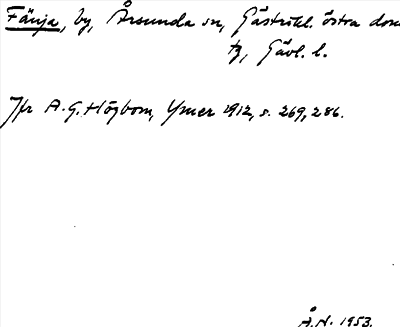 Fänja, by, Årsunda sn, Gästrikl. östra dom
tg, Gävl. l.
Jfr A.G. Högbom, Ymer 1912, s. 269, 286.
Å.N. 1953.